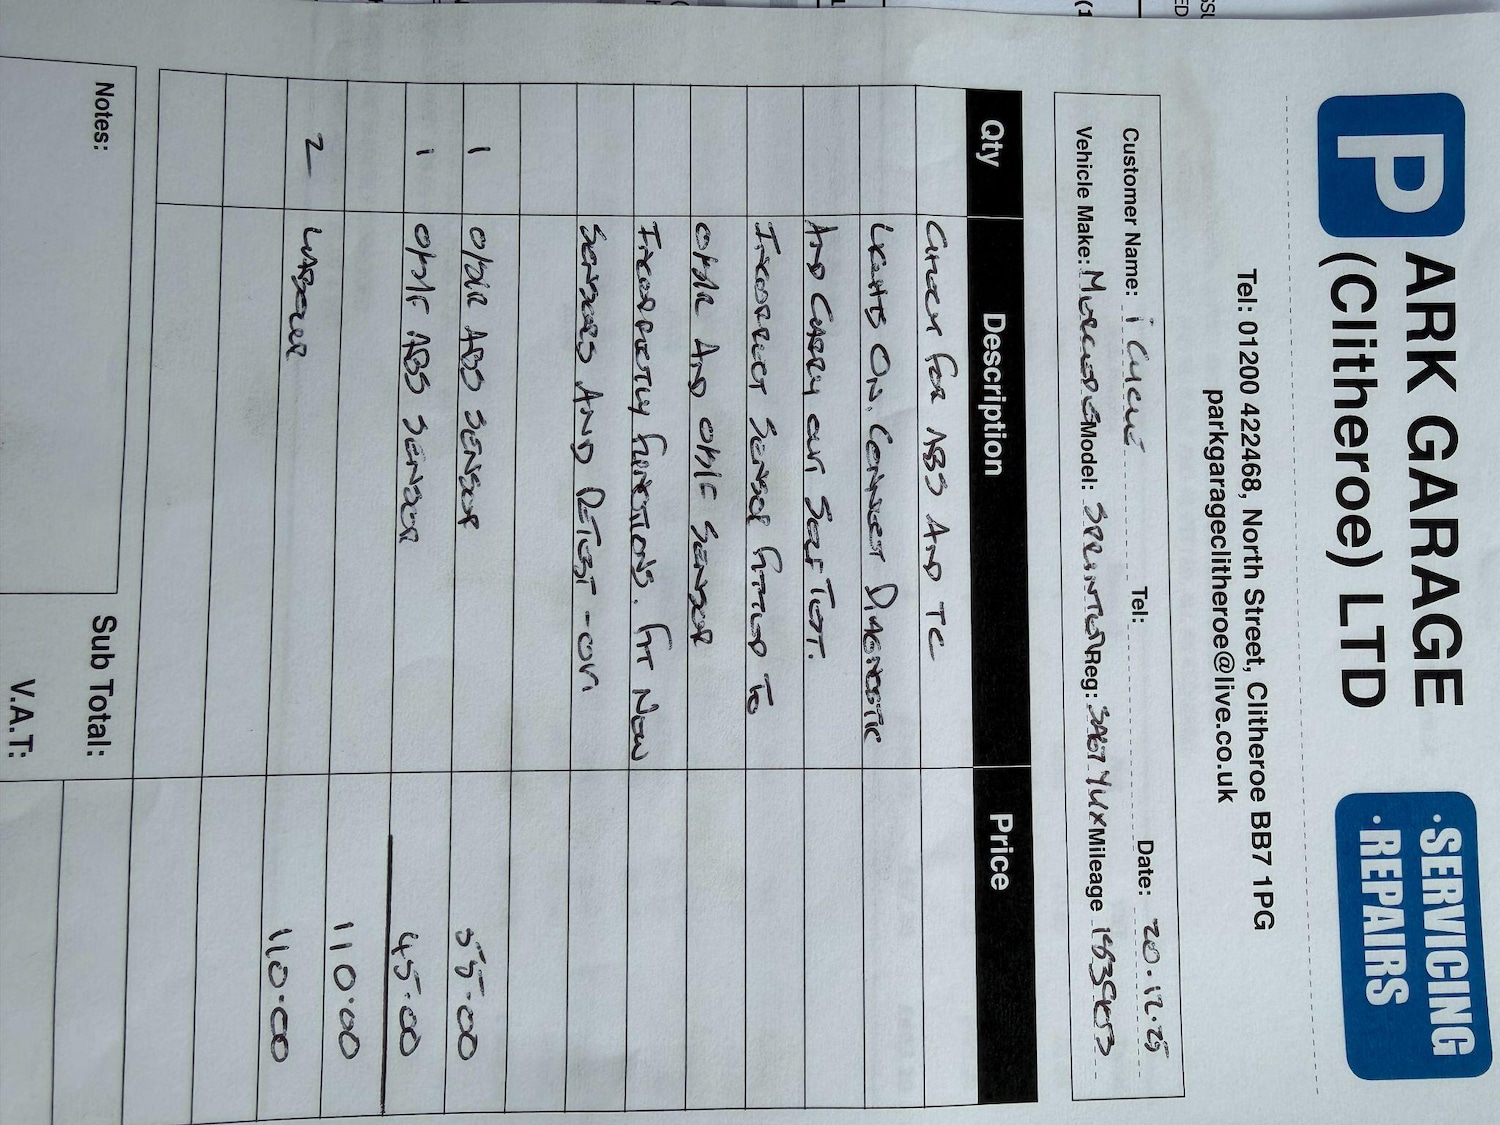 PARK GARAGE
(Clitheroe) LTD
·SERVICING
·REPAIRS
Tel: 01200 422468, North Street, Clitheroe BB7 1PG
parkgarageclitheroe@live.co.uk
Customer Name: Tel: Date: 20.12.25
Vehicle Make: Mercedes Model: SPRINTER Reg: Mileage
Qty Description Price
CHECK FOR ABS AND TC
LIGHTS ON. CONNECT DIAGNOSTIC
AND CARRY OUT SELF TEST.
INCORRECT SENSOR FITTED TO
O/S/R AND O/S/F SENSOR
INCORRECTLY FUNCTIONS. FIT NEW
SENSORS AND RETEST - OK
1 O/S/R ABS SENSOR 55.00
1 O/S/F ABS SENSOR 45.00
110.00
2 LABOUR 110.00
Notes:
Sub Total:
V.A.T: